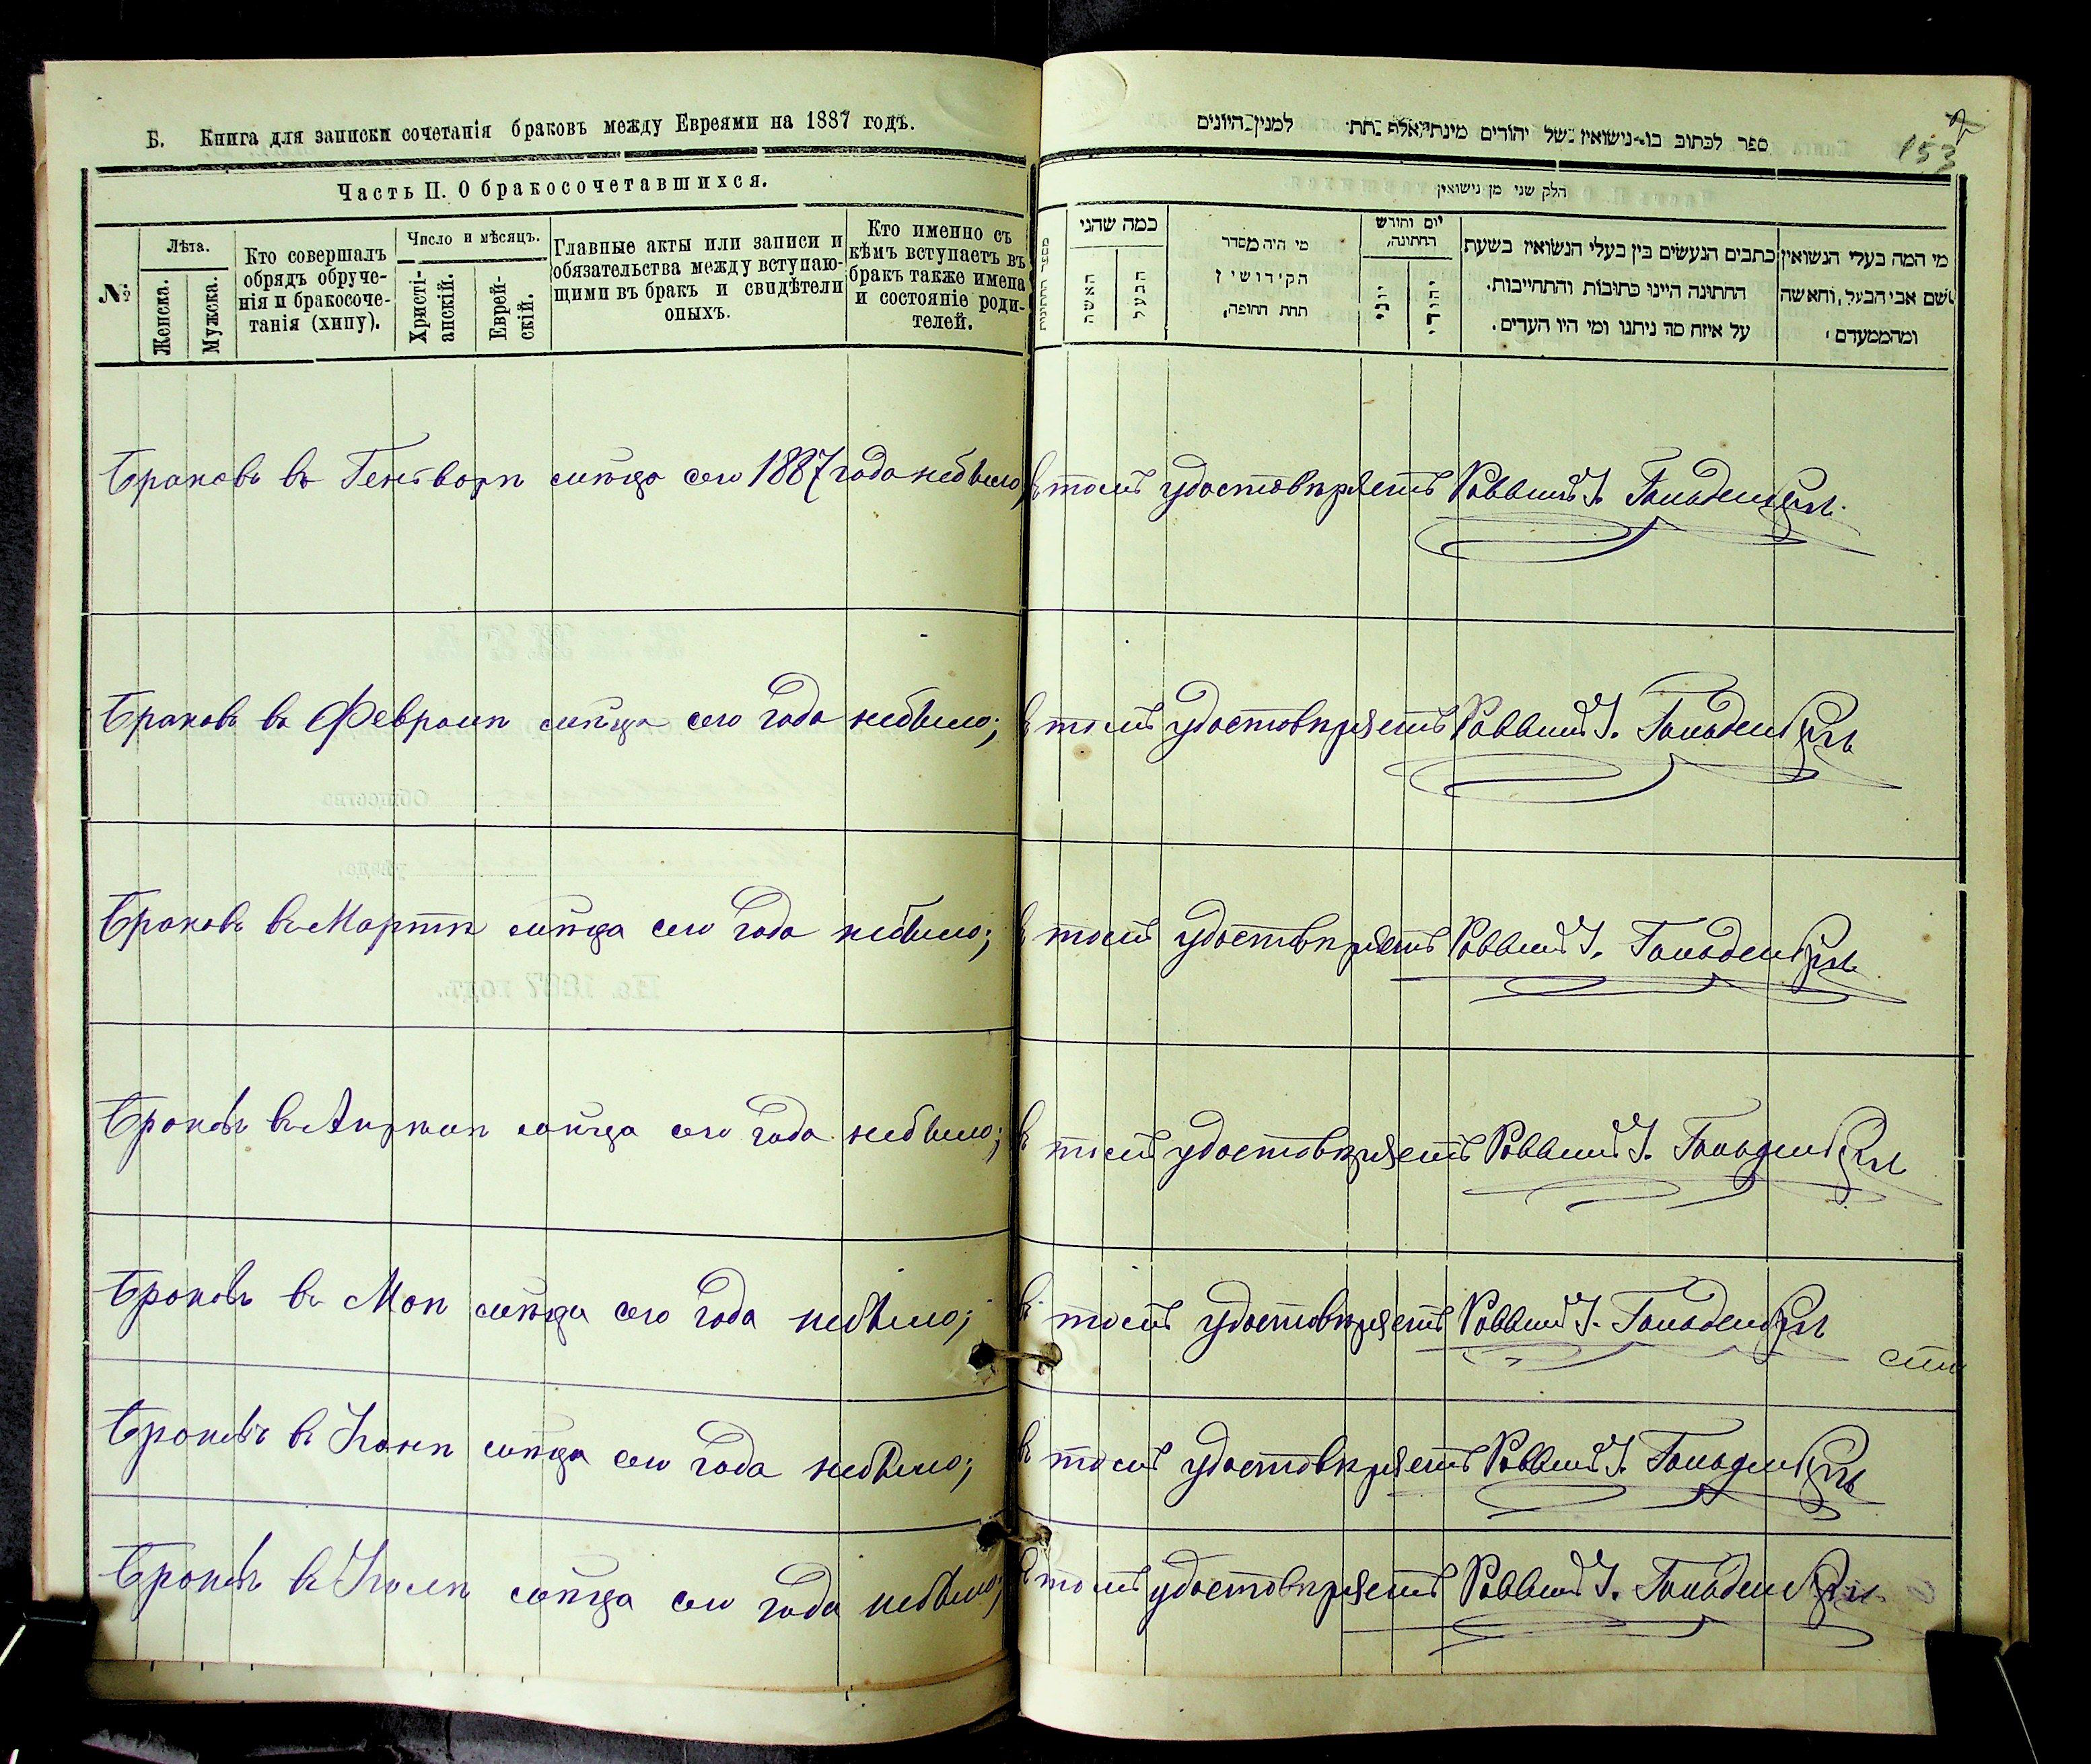 Б. Книга для записки сочетанія браковъ между Евреями на 1887 годъ.
Часть II. О бракосочетавшихся.
№
Лѣта.
Женска.
Мужеска.
Кто совершалъ
обрядъ обруче-
нія и бракосоче-
танія (хипу).
Число и мѣсяцъ.
Христі-
анскій.
Еврей-
скій.
Главные акты или записи и
обязательства между вступаю-
щими въ бракъ и свидѣтели
оныхъ.
Кто именно съ
кѣмъ вступаетъ въ
бракъ также имена
и состояніе роди-
телей.
ספר לכתוב בו נישואין של יהודים למנין היונים
153
חלק שני מן נישואין
כמה שהני
האשה
הבעל
מי היה מסדר
הקידושין
תחת החופה,
יום וחודש
החתונה,
יוני
יהודי
כתבים הנעשים בין בעלי הנשואין בשעת
החתונה היינו כתובות והתחייבות.
על איזה סה ניתנו ומי היו העדים.
מי המה בעלי הנשואין
ושם אבי הבעל, והאשה
ומהממעדם
Браковъ въ Генварѣ мѣсяца сего 1887 года небыло, въ томъ удостовѣряетъ Раввинъ І. Гольденбергъ
Браковъ въ Февралѣ мѣсяца сего года небыло; въ томъ удостовѣряетъ Раввинъ І. Гольденбергъ
Браковъ въ Мартѣ мѣсяца сего года небыло; въ томъ удостовѣряетъ Раввинъ І. Гольденбергъ
Браковъ въ Апрѣлѣ мѣсяца сего года небыло; въ томъ удостовѣряетъ Раввинъ І. Гольденбергъ
Браковъ въ Маѣ мѣсяца сего года небыло; въ томъ удостовѣряетъ Раввинъ І. Гольденбергъ
Браковъ въ Іюнѣ мѣсяца сего года небыло; въ томъ удостовѣряетъ Раввинъ І. Гольденбергъ
Браковъ въ Іюлѣ мѣсяца сего года небыло; въ томъ удостовѣряетъ Раввинъ І. Гольденбергъ